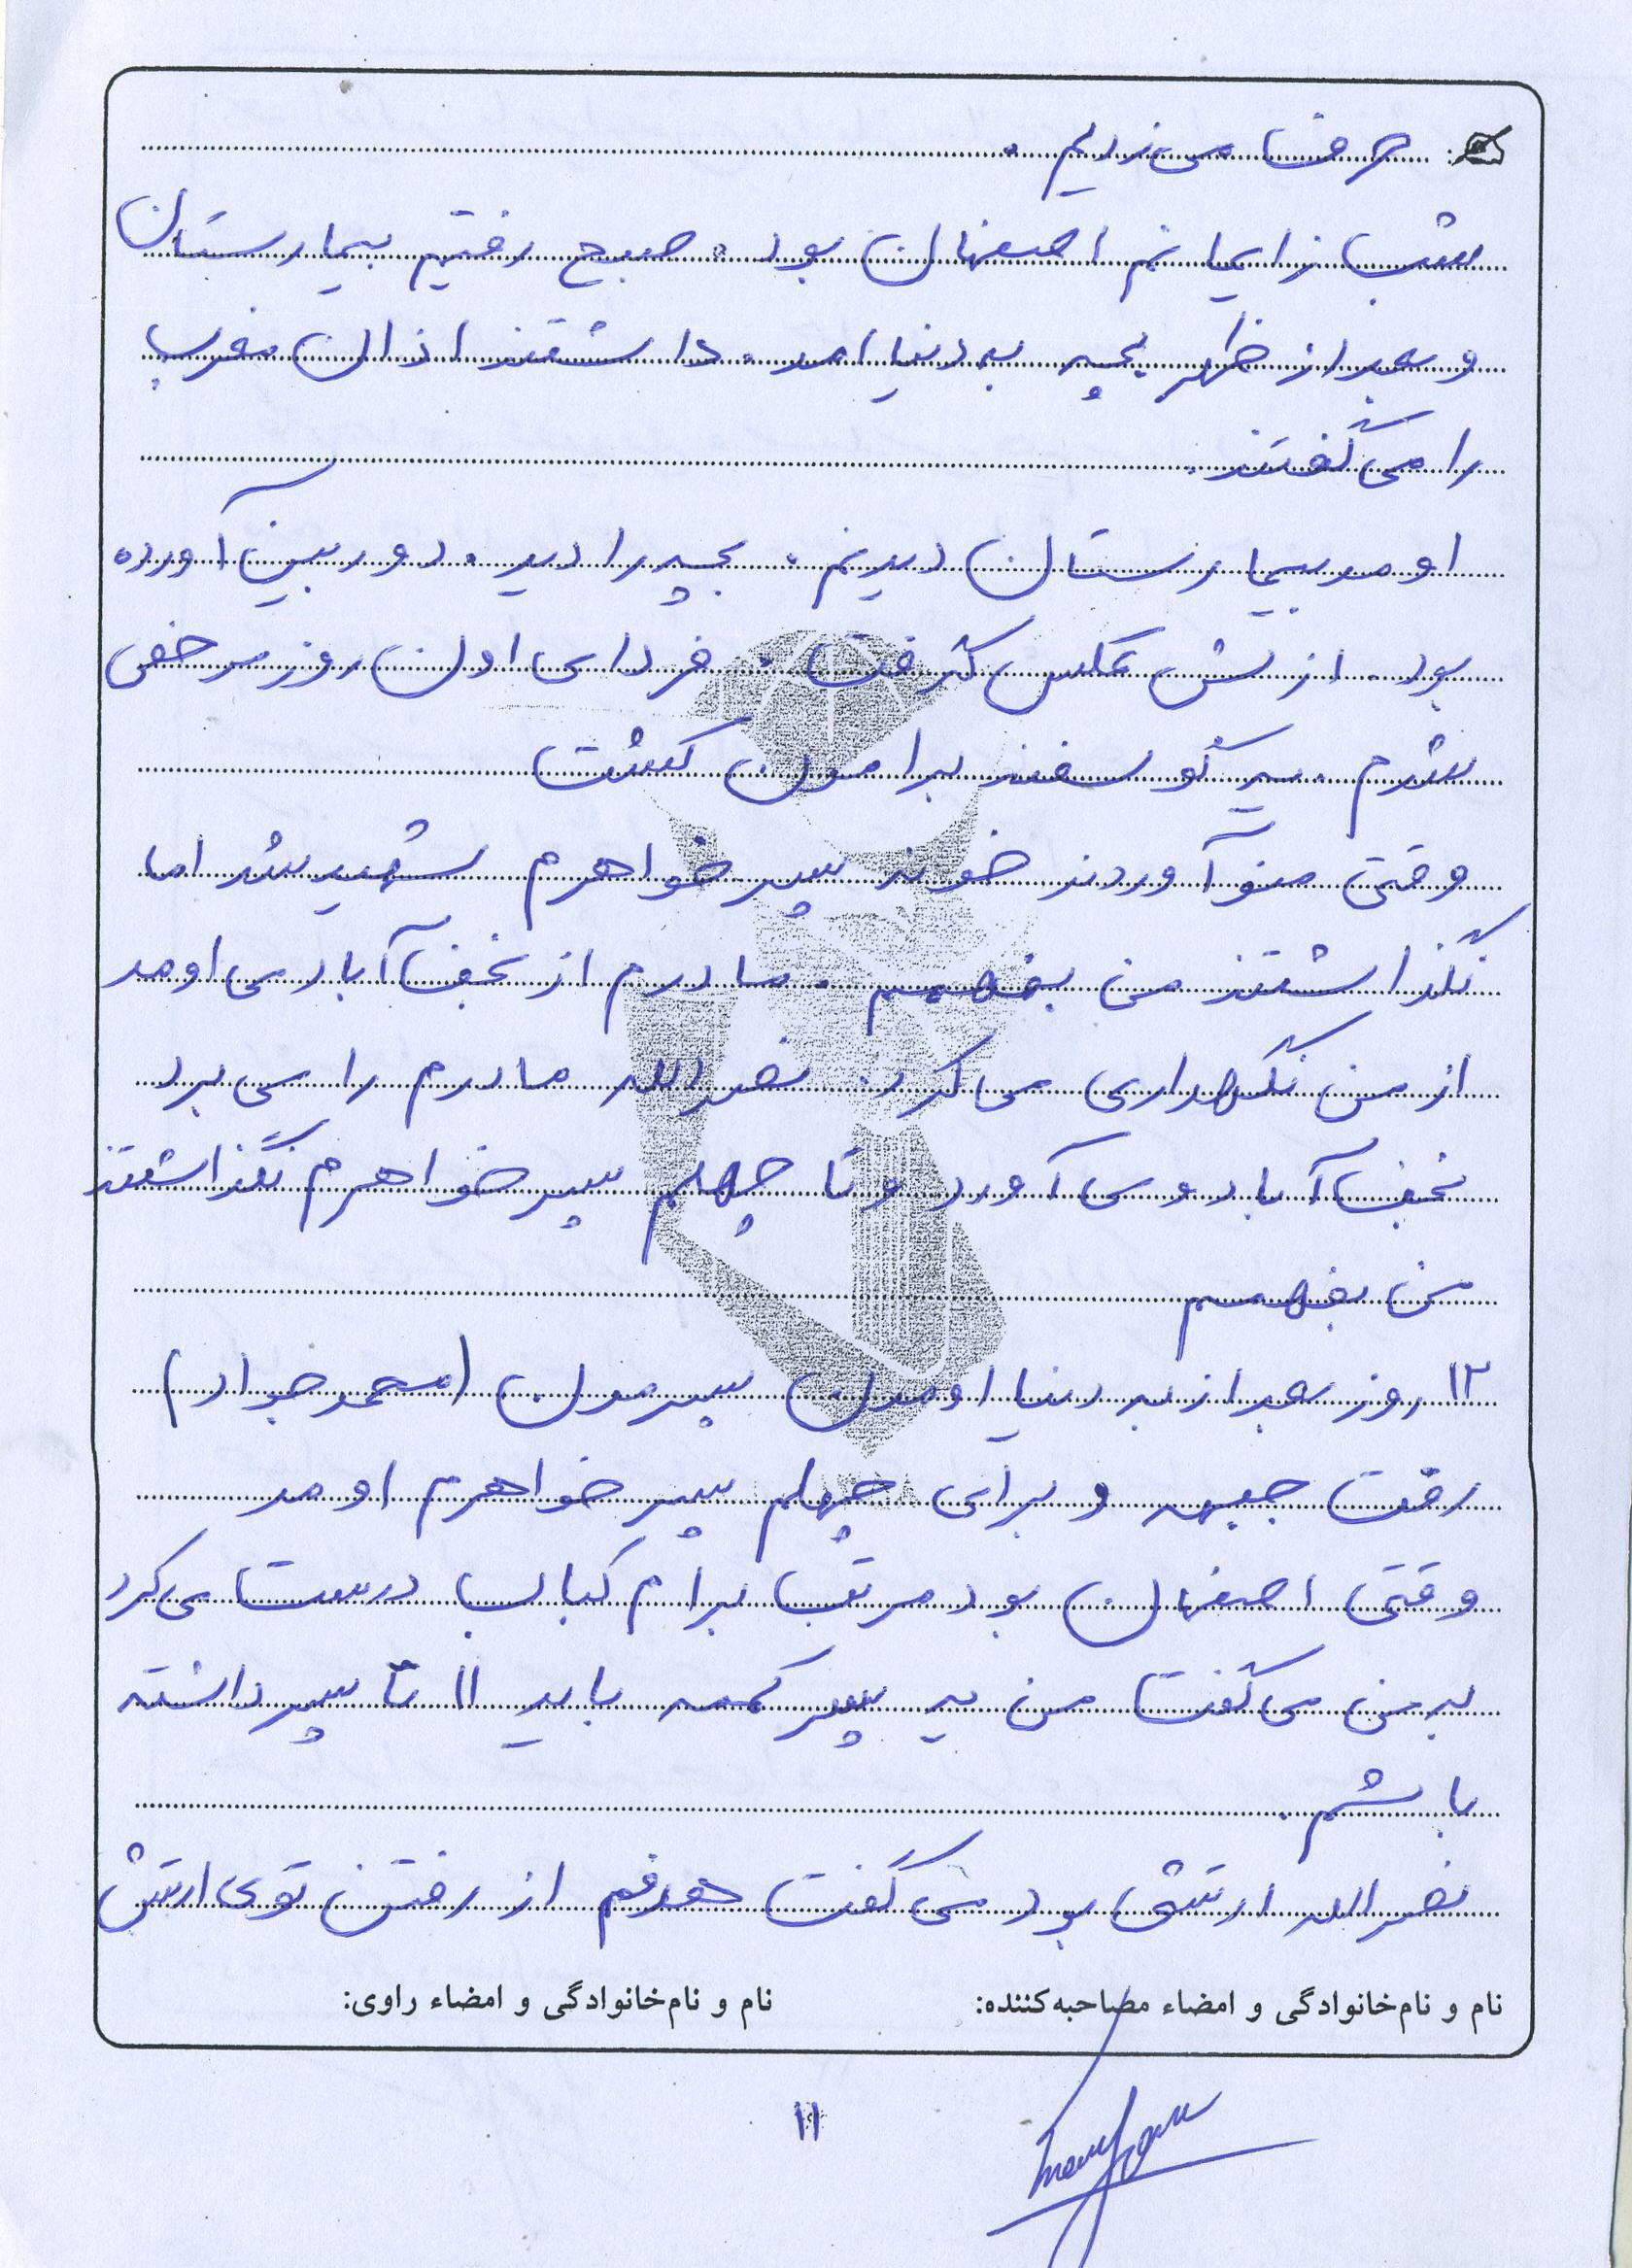 حرف می‌زدیم.
شب زایمانم اصفهان بود. صبح رفتیم بیمارستان
و بعد از ظهر بچه به دنیا امد. داشتند اذان مغرب
را می‌گفتند.
اومد بیمارستان دیدنم. بچه را دید. دوربین آورده
بود. ازش عکس گرفت. فردای اون روز مرخص
شدم. یه گوسفند برامون کشت
وقتی منو آوردند خونه پسر خواهرم شهید شد اما
نگذاشتند من بفهمم. مادرم از نجف آباد می اومد
از من نگهداری می‌کرد. نصرالله مادرم را می برد
نجف آباد و می آورد و تا چهلم پسر خواهرم نگذاشتند
من بفهمم
۱۲ روز بعد از به دنیا اومدن پسرمون (محمد جواد)
رفت جبهه و برای چهلم پسر خواهرم اومد
وقتی اصفهان بود مرتب برام کباب درست می‌کرد
به من می‌گفت من یه پسر کمه باید ۱۱ تا پسر داشته
باشم.
نصرالله ارتشی بود می گفت هدفم از رفتن توی ارتش
نام و نام‌خانوادگی و امضاء مصاحبه‌کننده: نام و نام‌خانوادگی و امضاء راوی:
۱۱